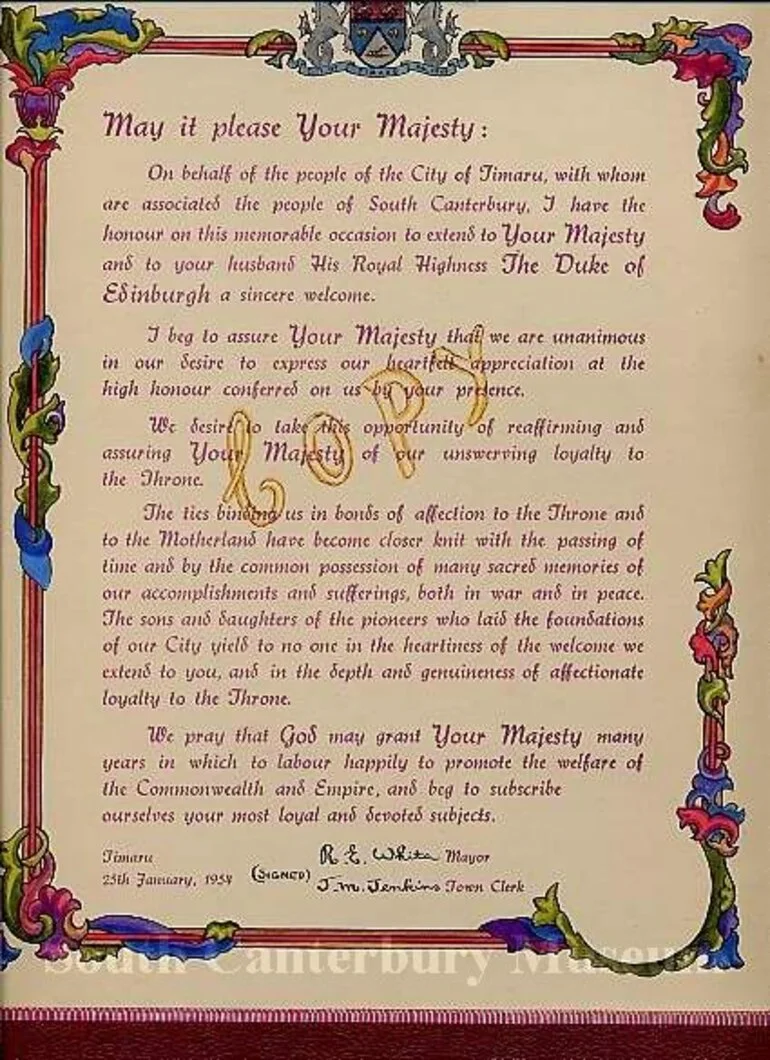 May it please Your Majesty:
On behalf of the people of the City of Timaru, with whom
are associated the people of South Canterbury, I have the
honour on this memorable occasion to extend to Your Majesty
and to your husband His Royal Highness The Duke of
Edinburgh a sincere welcome.
I beg to assure Your Majesty that we are unanimous
in our desire to express our heartfelt appreciation at the
high honour conferred on us by your presence.
We desire to take this opportunity of reaffirming and
assuring Your Majesty of our unswerving loyalty to
the Throne.
COPY
The ties binding us in bonds of affection to the Throne and
to the Motherland have become closer knit with the passing of
time and by the common possession of many sacred memories of
our accomplishments and sufferings, both in war and in peace.
The sons and daughters of the pioneers who laid the foundations
of our City yield to no one in the heartiness of the welcome we
extend to you, and in the depth and genuineness of affectionate
loyalty to the Throne.
We pray that God may grant Your Majesty many
years in which to labour happily to promote the welfare of
the Commonwealth and Empire, and beg to subscribe
ourselves your most loyal and devoted subjects.
Timaru R. E. White Mayor
25th January, 1954 (SIGNED) J. M. Jenkins Town Clerk
South Canterbury Museum